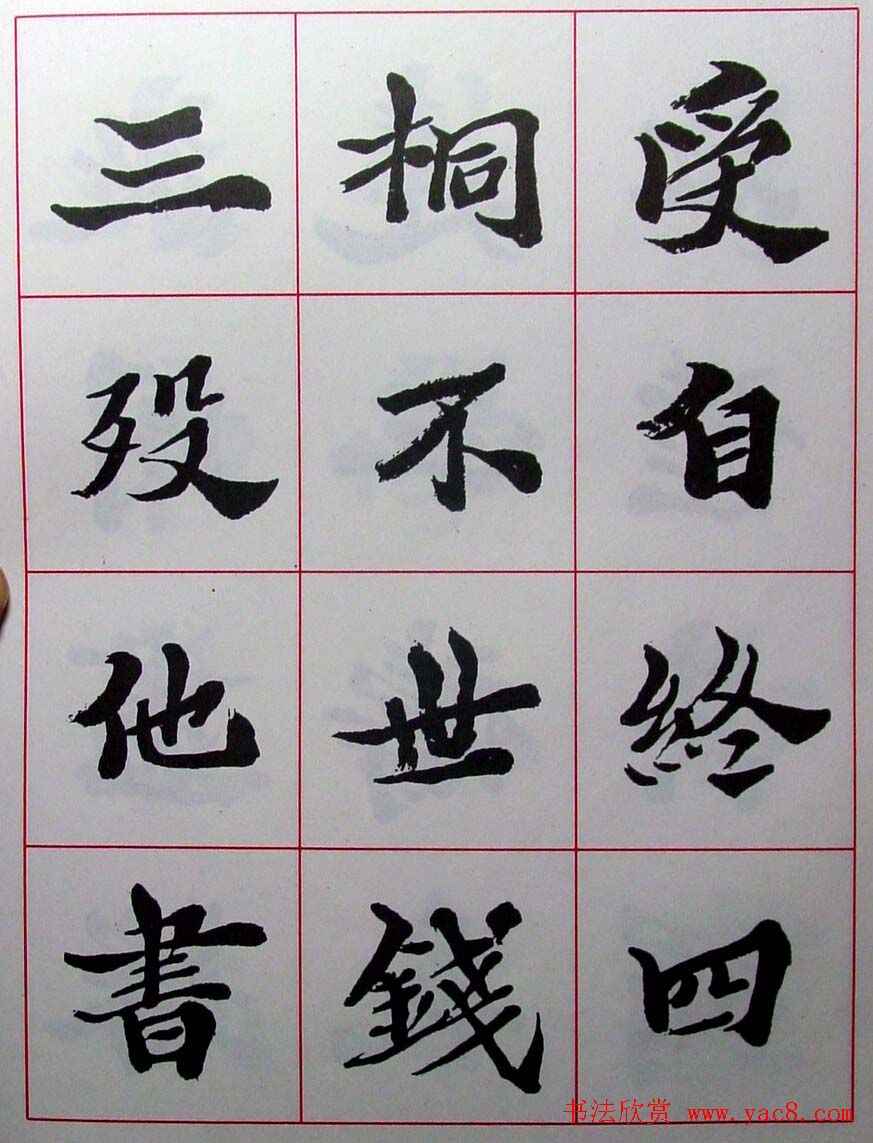 受自終四
桐不世錢
三歿他書
书法欣赏 www.yac8.com